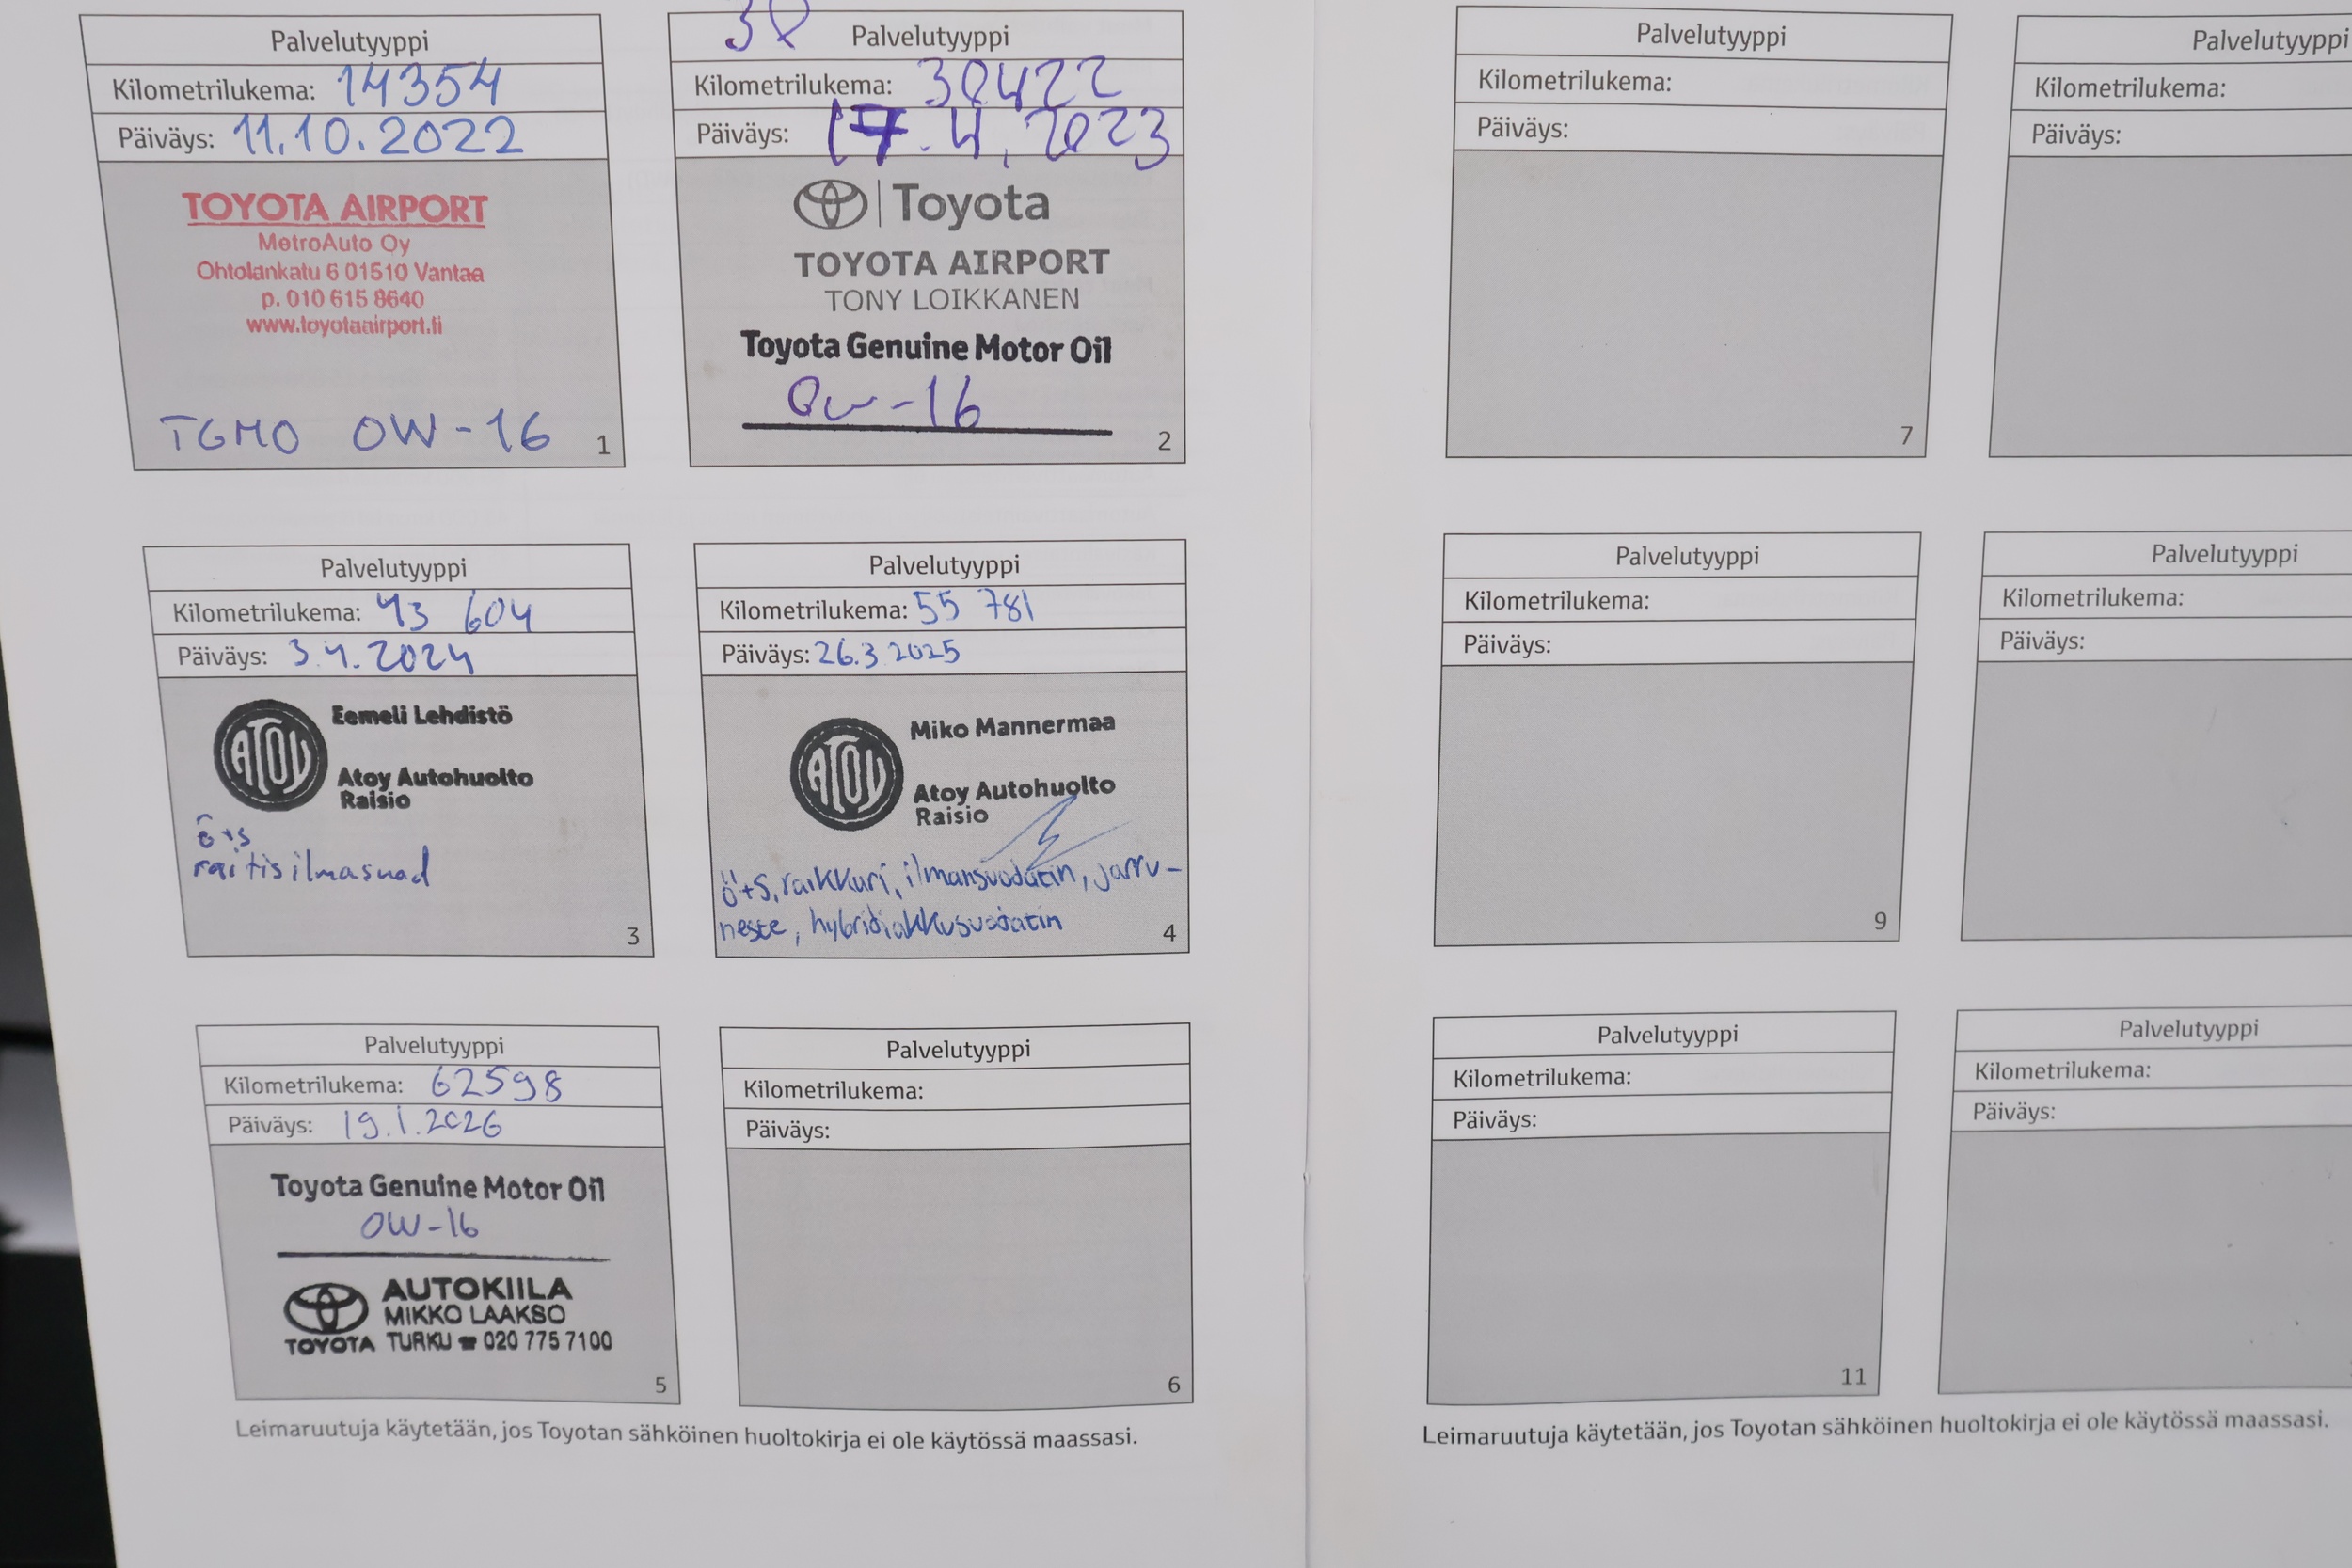 Palvelutyyppi
Kilometrilukema: 14354
Päiväys: 11.10.2022
TOYOTA AIRPORT
MetroAuto Oy
Ohtolankatu 6 01510 Vantaa
p. 010 615 8640
www.toyotaairport.fi
TGMO 0W-16
1
Palvelutyyppi
Kilometrilukema: 30422
Päiväys: 17.4.2023
Toyota
TOYOTA AIRPORT
TONY LOIKKANEN
Toyota Genuine Motor Oil
0w-16
2
Palvelutyyppi
Kilometrilukema: 43 604
Päiväys: 3.4.2024
ATOY
Eemeli Lehdistö
Atoy Autohuolto
Raisio
ö+s
raitisilmasuod
3
Palvelutyyppi
Kilometrilukema: 55 781
Päiväys: 26.3.2025
ATOY
Miko Mannermaa
Atoy Autohuolto
Raisio
ö+s, raikkuri, ilmansuodatin, jarru-
neste, hybridiakkusuodatin
4
Palvelutyyppi
Kilometrilukema: 62598
Päiväys: 19.1.2026
Toyota Genuine Motor Oil
0W-16
AUTOKIILA
MIKKO LAAKSO
TOYOTA TURKU ☎ 020 775 7100
5
Palvelutyyppi
Kilometrilukema:
Päiväys:
6
Leimaruutuja käytetään, jos Toyotan sähköinen huoltokirja ei ole käytössä maassasi.
Palvelutyyppi
Kilometrilukema:
Päiväys:
7
Palvelutyyppi
Kilometrilukema:
Päiväys:
Palvelutyyppi
Kilometrilukema:
Päiväys:
9
Palvelutyyppi
Kilometrilukema:
Päiväys:
Palvelutyyppi
Kilometrilukema:
Päiväys:
11
Palvelutyyppi
Kilometrilukema:
Päiväys:
Leimaruutuja käytetään, jos Toyotan sähköinen huoltokirja ei ole käytössä maassasi.